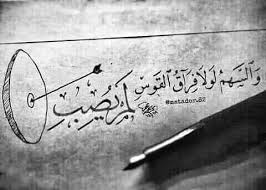 وَالسَّهمُ لَولَا فِرَاقُ القَوسِ لَمْ يُصِبِ
@matador.82